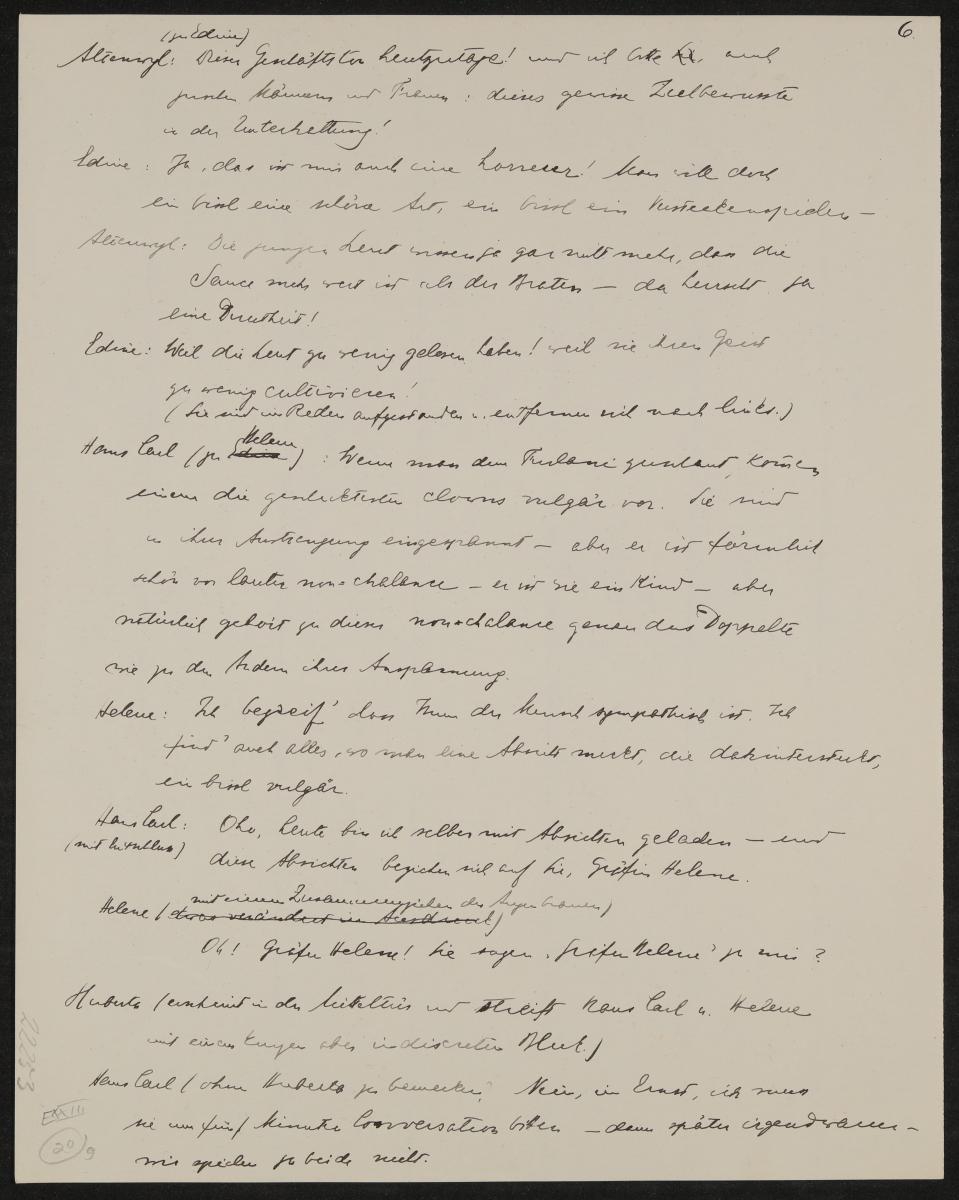 6.
(zu Edine)
Altenwyl: Dieser Geschäftston heutzutage! und ich bitte Sie, auch
zwischen Männern und Frauen: dieses gewisse Zielbewusste
in der Unterhaltung!
Edine: Ja, das ist mir auch eine horreur! Man will doch
ein bissl eine schöne Art, ein bissl ein Versteckenspielen –
Altenwyl: Die jungen Leut wissen ja gar nicht mehr, dass die
Sauce mehr wert ist als der Braten – da herrscht ja
eine Directheit!
Edine: Weil die Leut zu wenig gelesen haben! weil sie ihren Geist
zu wenig cultivieren!
(Sie sind im Reden aufgestanden u. entfernen sich nach links.)
Hans Carl (zu Edine Helene): Wenn man dem Furlani zuschaut, kommen
einem die geschicktesten clowns vulgär vor. Sie sind
in ihrer Anstrengung eingespannt – aber er ist förmlich
schön vor lauter non-chalance – er ist wie ein Kind – aber
natürlich gehört zu dieser non-chalance genau das Doppelte
wie zu den Andern ihrer Anspannung.
Helene: Ich begreif' dass Ihnen der Mensch sympathisch ist. Ich
find' auch alles, wo man eine Absicht merkt, die dahintersteckt,
ein bissl vulgär.
Hans Carl: Oho, heute bin ich selber mit Absichten geladen – und
(mit Entschluss)
diese Absichten beziehen sich auf Sie, Gräfin Helene.
mit einem Zusammenziehen der Augenbrauen)
Helene (etwas verändert im Ausdruck)
Oh! Gräfin Helene! Sie sagen „Gräfin Helene" zu mir?
Huberta (erscheint in der Mitteltür und streift Hans Carl u. Helene
mit einem kurzen aber indiscreten Blick.)
Hans Carl (ohne Huberta zu bemerken) Nein, im Ernst, ich muss
sie um fünf Minuten Conversation bitten – dann später irgendwann –
wir spielen ja beide nicht.
2223
E XXIII
20/9